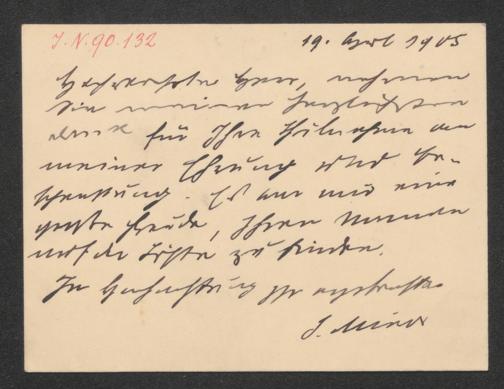 I. N. 90.132
19. April 1905
Hochverehrter Herr, nehmen
Sie meinen herzlichsten
Dank für Ihre Theilnahme an
meiner Ehrung und Be-
schenkung. Es war mir eine
große Freude, Ihren Namen
auf der Liste zu finden.
In Hochachtung Ihr ergebenster
J. Minor